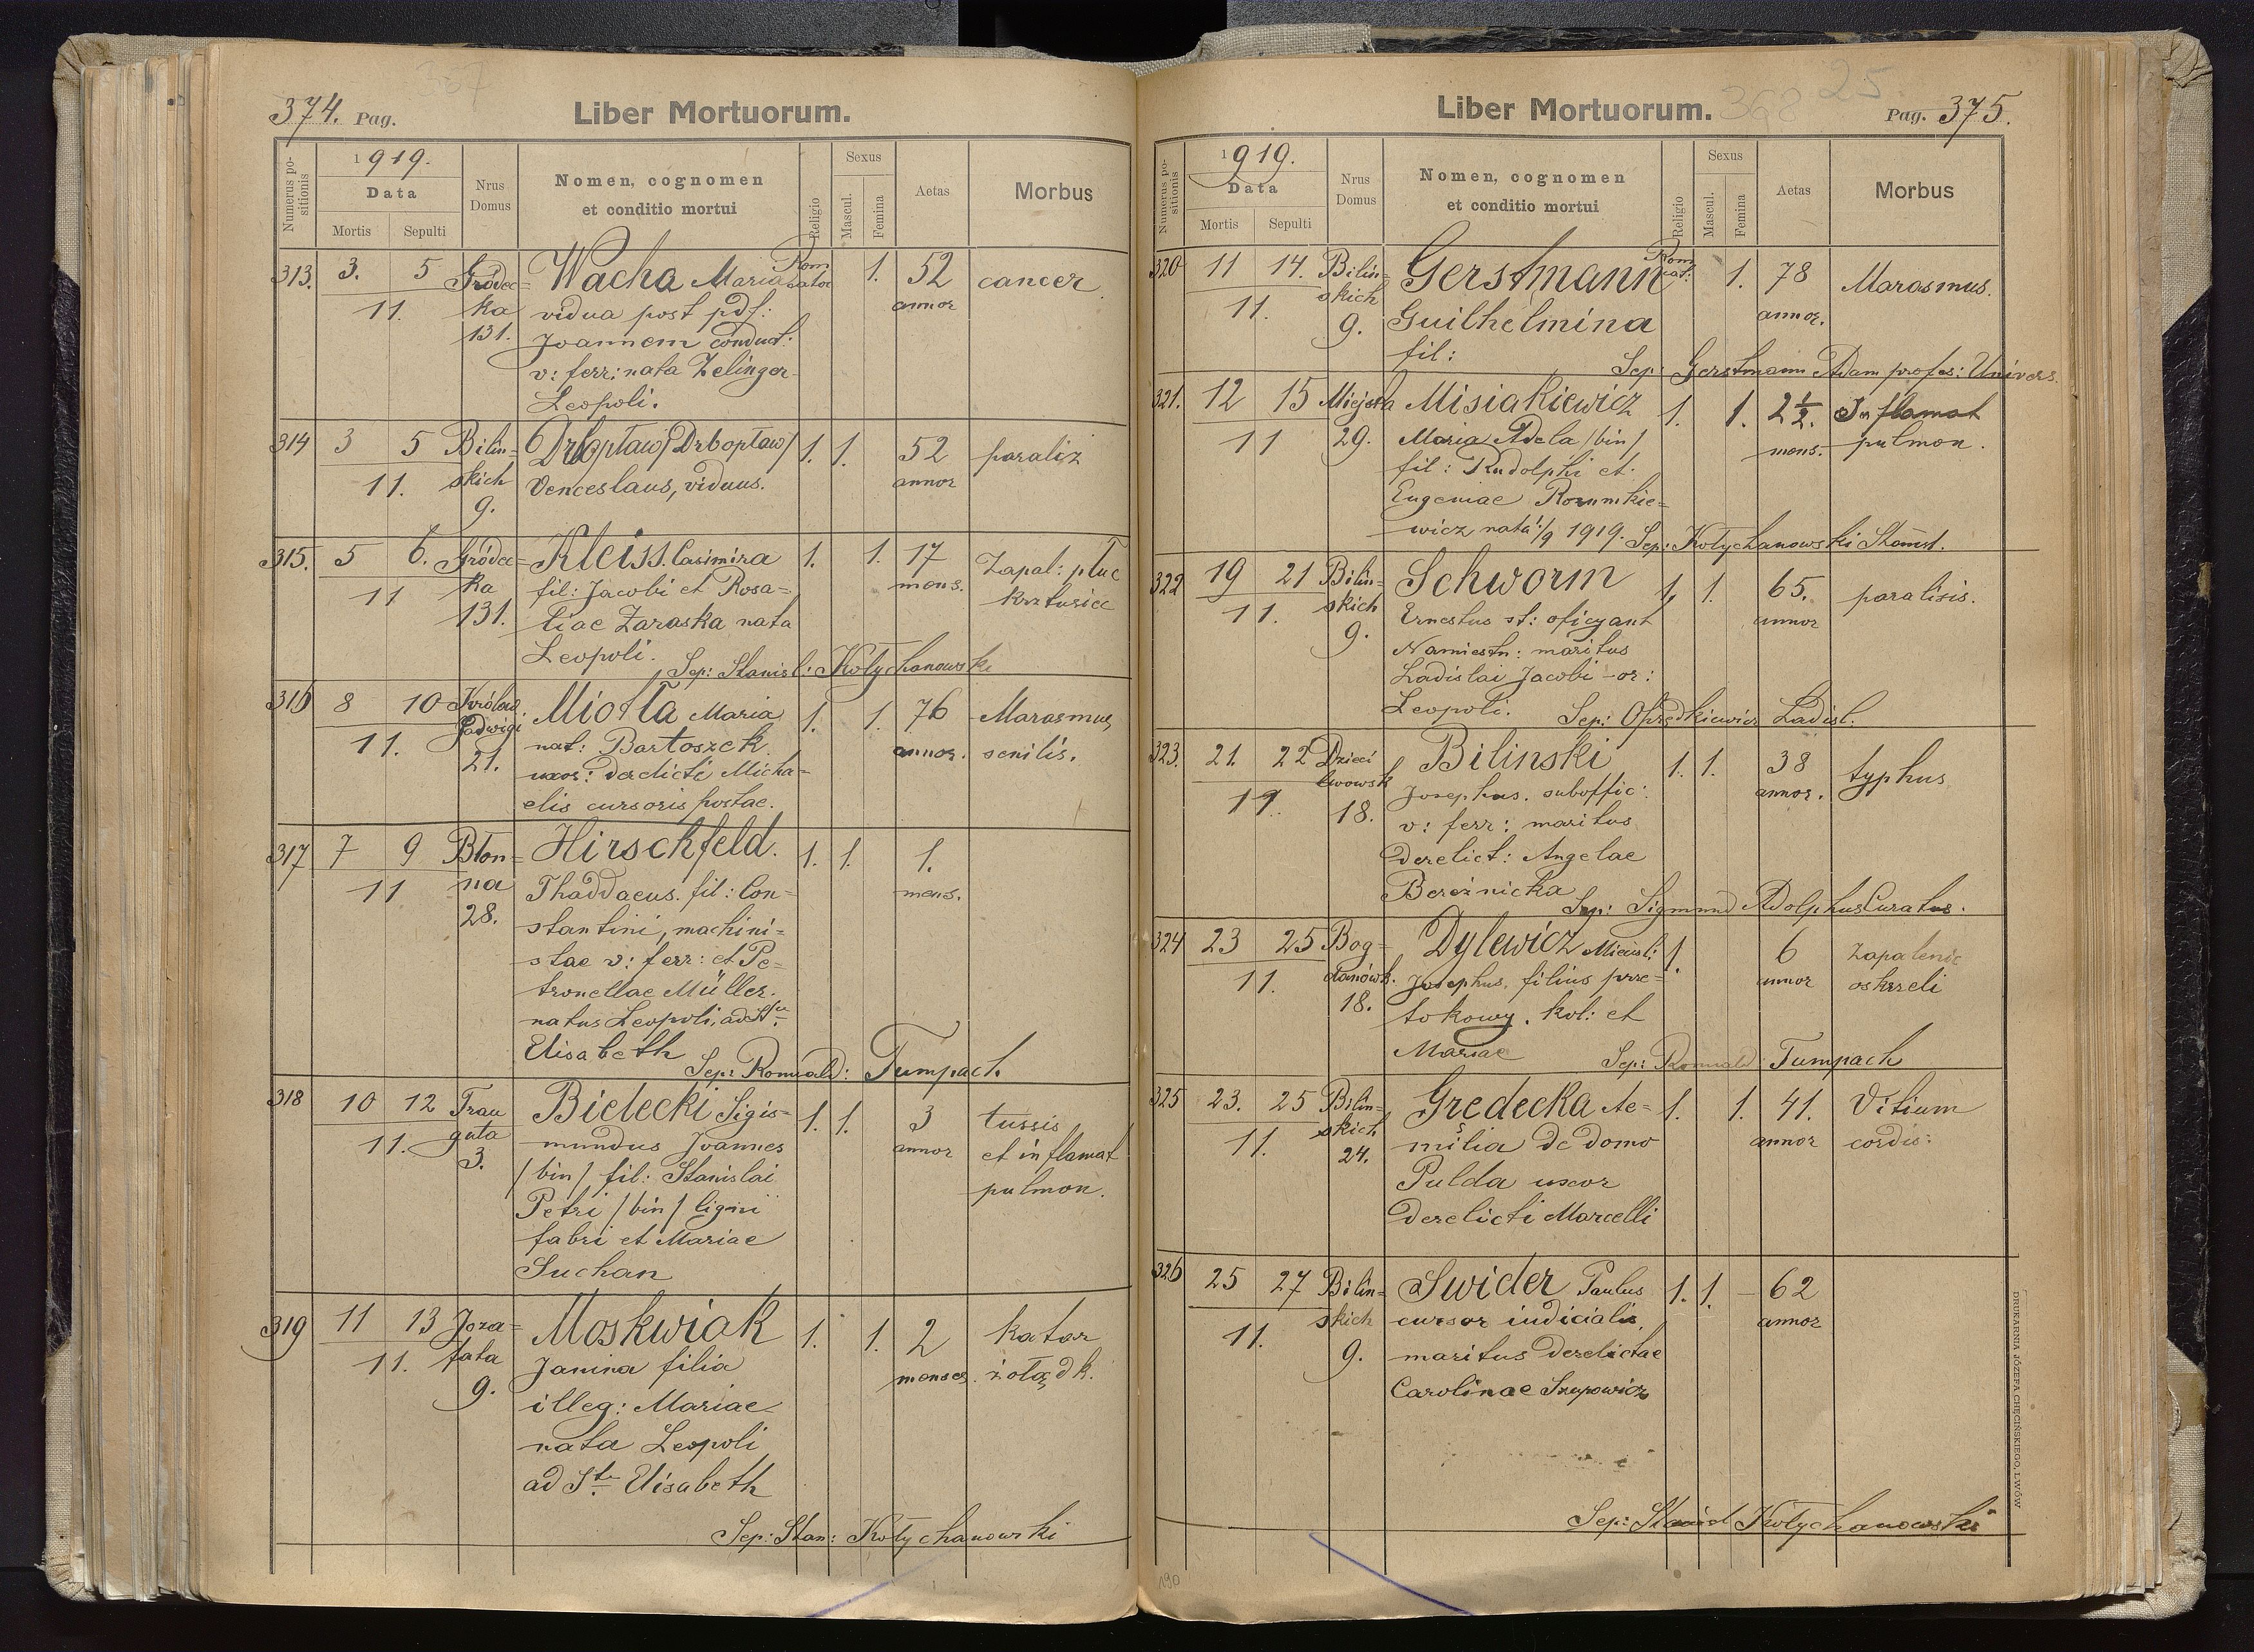 374. Pag.
Liber Mortuorum.
Numerus positionis
1919.
Data
Mortis
Sepulti
Nrus Domus
Nomen, cognomen
et conditio mortui
Religio
Sexus
Mascul.
Femina
Aetas
Morbus
313. 3. 5 Gródec= Wacha Maria Rom 1. 52 cancer
11. ka vidua post pdf: annor
131. Joannem conduct:
v: ferr: nata Zelinger
Leopoli.
314 3 5 Bilin= Drboptaw/Drboptaw/ 1. 1. 52 paraliz
11. skich Venceslaus, viduus. annor
9.
315. 5 6. Gródec= Kleiss. Casimira 1. 1. 17 Zapal: płuc
11 ka fil: Jacobi et Rosa= mens. krztusiec
131. liae Zaraska nata
Leopoli. Sep: Stanisl: Kotychanowski
316 8 10 Królow. Miotła Maria 1. 1. 76 Marasmus
11. Jadwigi nat: Bartoszek annor. senilis.
21. uxor: derelicti Micha=
elis cursoris postae.
317 7 9 Błon= Hirschfeld. 1. 1. 1.
11 na Thaddaeus. fil: Con= mens.
28. stantini, machini=
stae v: ferr: et Pe=
tronellae Müller.
natus Leopoli, ad Stu
Elisabeth Sep: Romuald: Tumpach.
318 10 12 Trau Bielecki Sigis= 1. 1. 3 tussis
11. guta mundus Joannes annor et inflamat
3. /bin/ fil: Stanislai pulmon.
Petri /bin/ ligni
fabri et Mariae
Suchan
319 11 13 Joza= Moskwiak 1. 1. 2 katar
11. fata Janina filia menses. żołądk.
9. illeg: Mariae
nata Leopoli
ad Ste Elisabeth
Sep: Stan: Kotychanowski
Liber Mortuorum. 368 25
Pag. 375.
Numerus positionis
1919.
Data
Mortis
Sepulti
Nrus Domus
Nomen, cognomen
et conditio mortui
Religio
Sexus
Mascul.
Femina
Aetas
Morbus
320 11 14. Bilin= Gerstmann Rom cat: 1. 78 Marasmus.
11. skich Guilhelmina annor.
9. fil:
Sep: Gerstmann Adam profes: Univers.
321. 12 15 Miejska Misiakiewicz 1. 1. 2½. Inflamat
11 29. Maria Adela /bin/ mens. pulmon.
fil: Rudolphi et
Eugeniae Rozumkie=
wicz nata 1/9 1919. Sep: Kotychanowski Stanisl.
322 19 21 Bilin= Schworm 1. 1. 65. paralisis.
11. skich Ernestus st: oficyant annor
9. Namiestn: maritus
Ladislai Jacobi-or:
Leopoli. Sep: Ladisl.
323. 21. 22 Dzieci Bilinski 1. 1. 38 typhus
11. lwowsk Josephus. suboffic: annor.
18. v: ferr: maritus
derelict: Angelae
Bereźnicka Sep: Sigmund Adolphus Curatus.
324 23 25 Bog= Dylewicz Miecisl: 1. 6 Zapalenie
11. danówk. Josephus, filius prze= annor oskrzeli
18. tokowy. kol: et
Mariae Sep: Romuald Tumpach
325 23. 25 Bilin= Grędecka Ae= 1. 1. 41. Vitium
11. skich milia de domo annor cordis:
24. Pulda uxor
derelicti Marcelli
326 25 27 Bilin= Swider Paulus 1. 1. – 62
11. skich cursor iudicialis, annor
9. maritus derelictae
Carolinae
Sep: Stanisl Kotychanowski
DRUKARNIA JÓZEFA CHĘCIŃSKIEGO, LWÓW
190